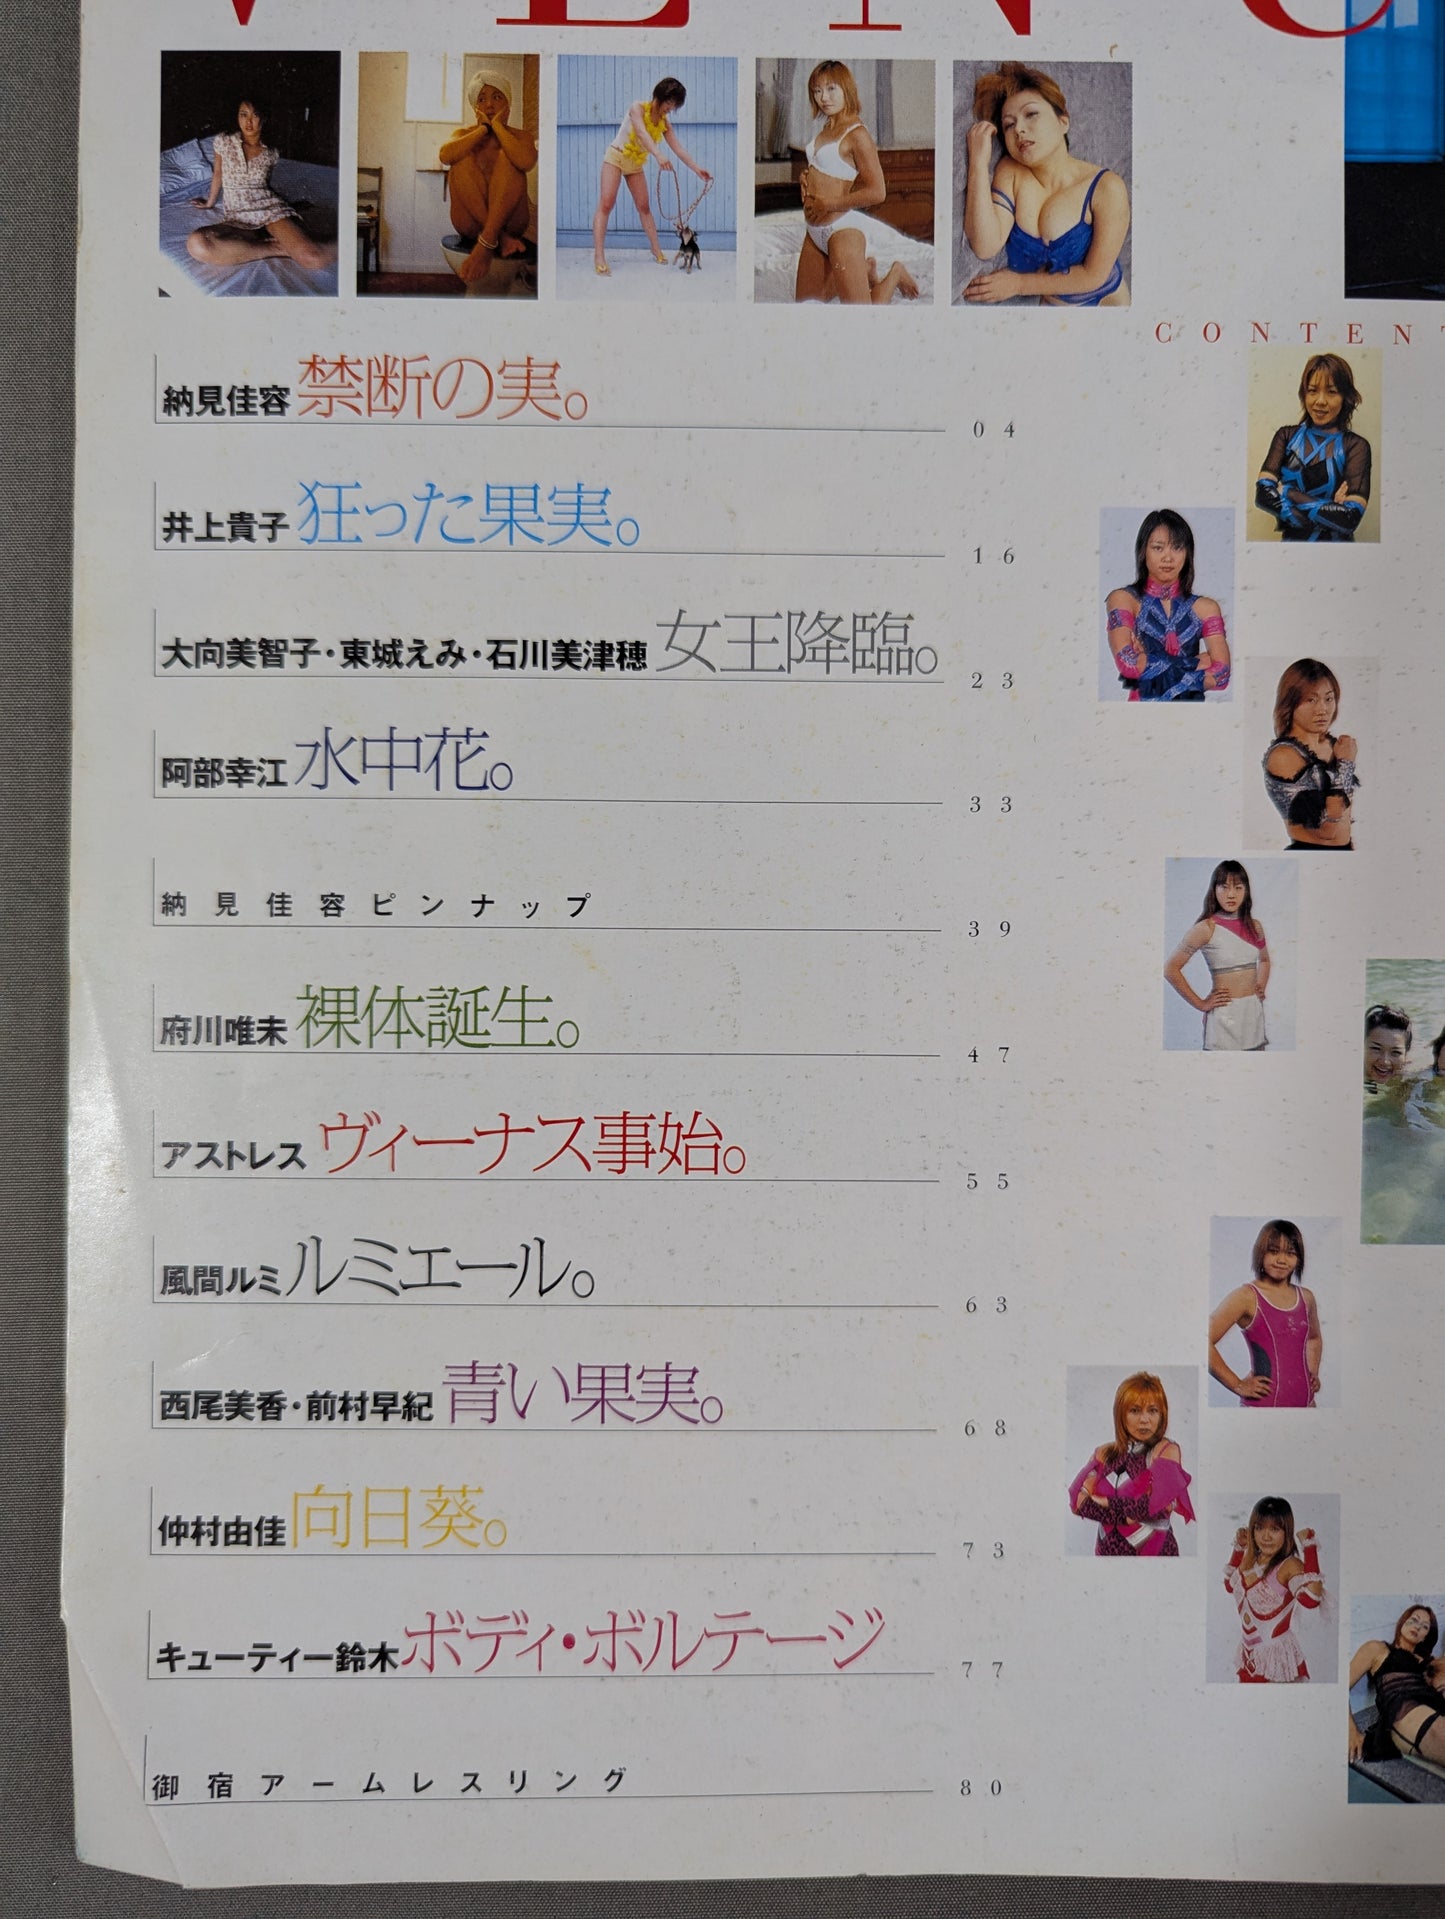 VENU
CONTENT
納見佳容 禁断の実。 04
井上貴子 狂った果実。 16
大向美智子・東城えみ・石川美津穂 女王降臨。 23
阿部幸江 水中花。 33
納見佳容ピンナップ 39
府川唯未 裸体誕生。 47
アストレス ヴィーナス事始。 55
風間ルミ ルミエール。 63
西尾美香・前村早紀 青い果実。 68
仲村由佳 向日葵。 73
キューティー鈴木 ボディ・ボルテージ 77
御宿アームレスリング 80